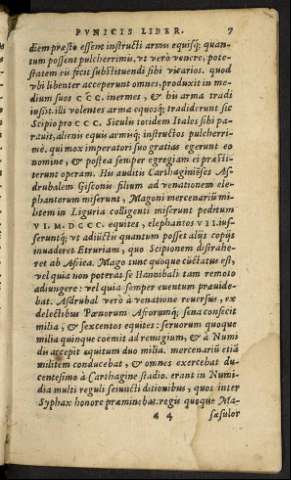 PVNICIS LIBER. 7
diem præsto essent instructi armis equisq; quan-
tum possent pulcherrimis, vt verò venere, pote-
statem eis fecit substituendi sibi vicarios. quod
vbi libenter acceperunt omnes, produxit in me-
dium suos CCC. inermes, & his arma tradi
iussit. illi volentes arma equosq; tradiderunt sic
Scipio pro CCC. Siculis totidem Italos sibi pa-
rauit, alienis equis armisq; instructos pulcherri-
mè. qui mox imperatori suo gratias egerunt eo
nomine, & postea semper egregiam ei præsti-
terunt operam. His auditis Carthaginiēses As-
drubalem Gisconis filium ad venationem ele-
phantorum miserunt, Magoni mercenariū mi-
litem in Liguria colligenti miserunt peditum
VI. M. DCCC. equites, elephantos VII. ius-
seruntq; vt adiūctis quantum posset alijs copijs
inuaderet Etruriam, quo Scipionem distrahe-
ret ab Africa. Mago tunc quoque cūctatus est,
vel quia non poterat se Hannibali tam remoto
adiungere: vel quia semper euentum præuide-
bat. Asdrubal verò à venatione reuersus, ex
delectibus Pœnorum Afrorumq; sena confecit
milia, & sexcentos equites: seruorum quoque
milia quinque coemit ad remigium, & à Numi
dis accepit equitum duo milia. mercenariū etiā
militem conducebat, & omnes exercebat du-
centesimo à Carthagine stadio. erant in Numi-
dia multi reguli seiuncti ditionibus, quos inter
Syphax honore præminebat. regis quoque Ma-
a 4 sæsulor